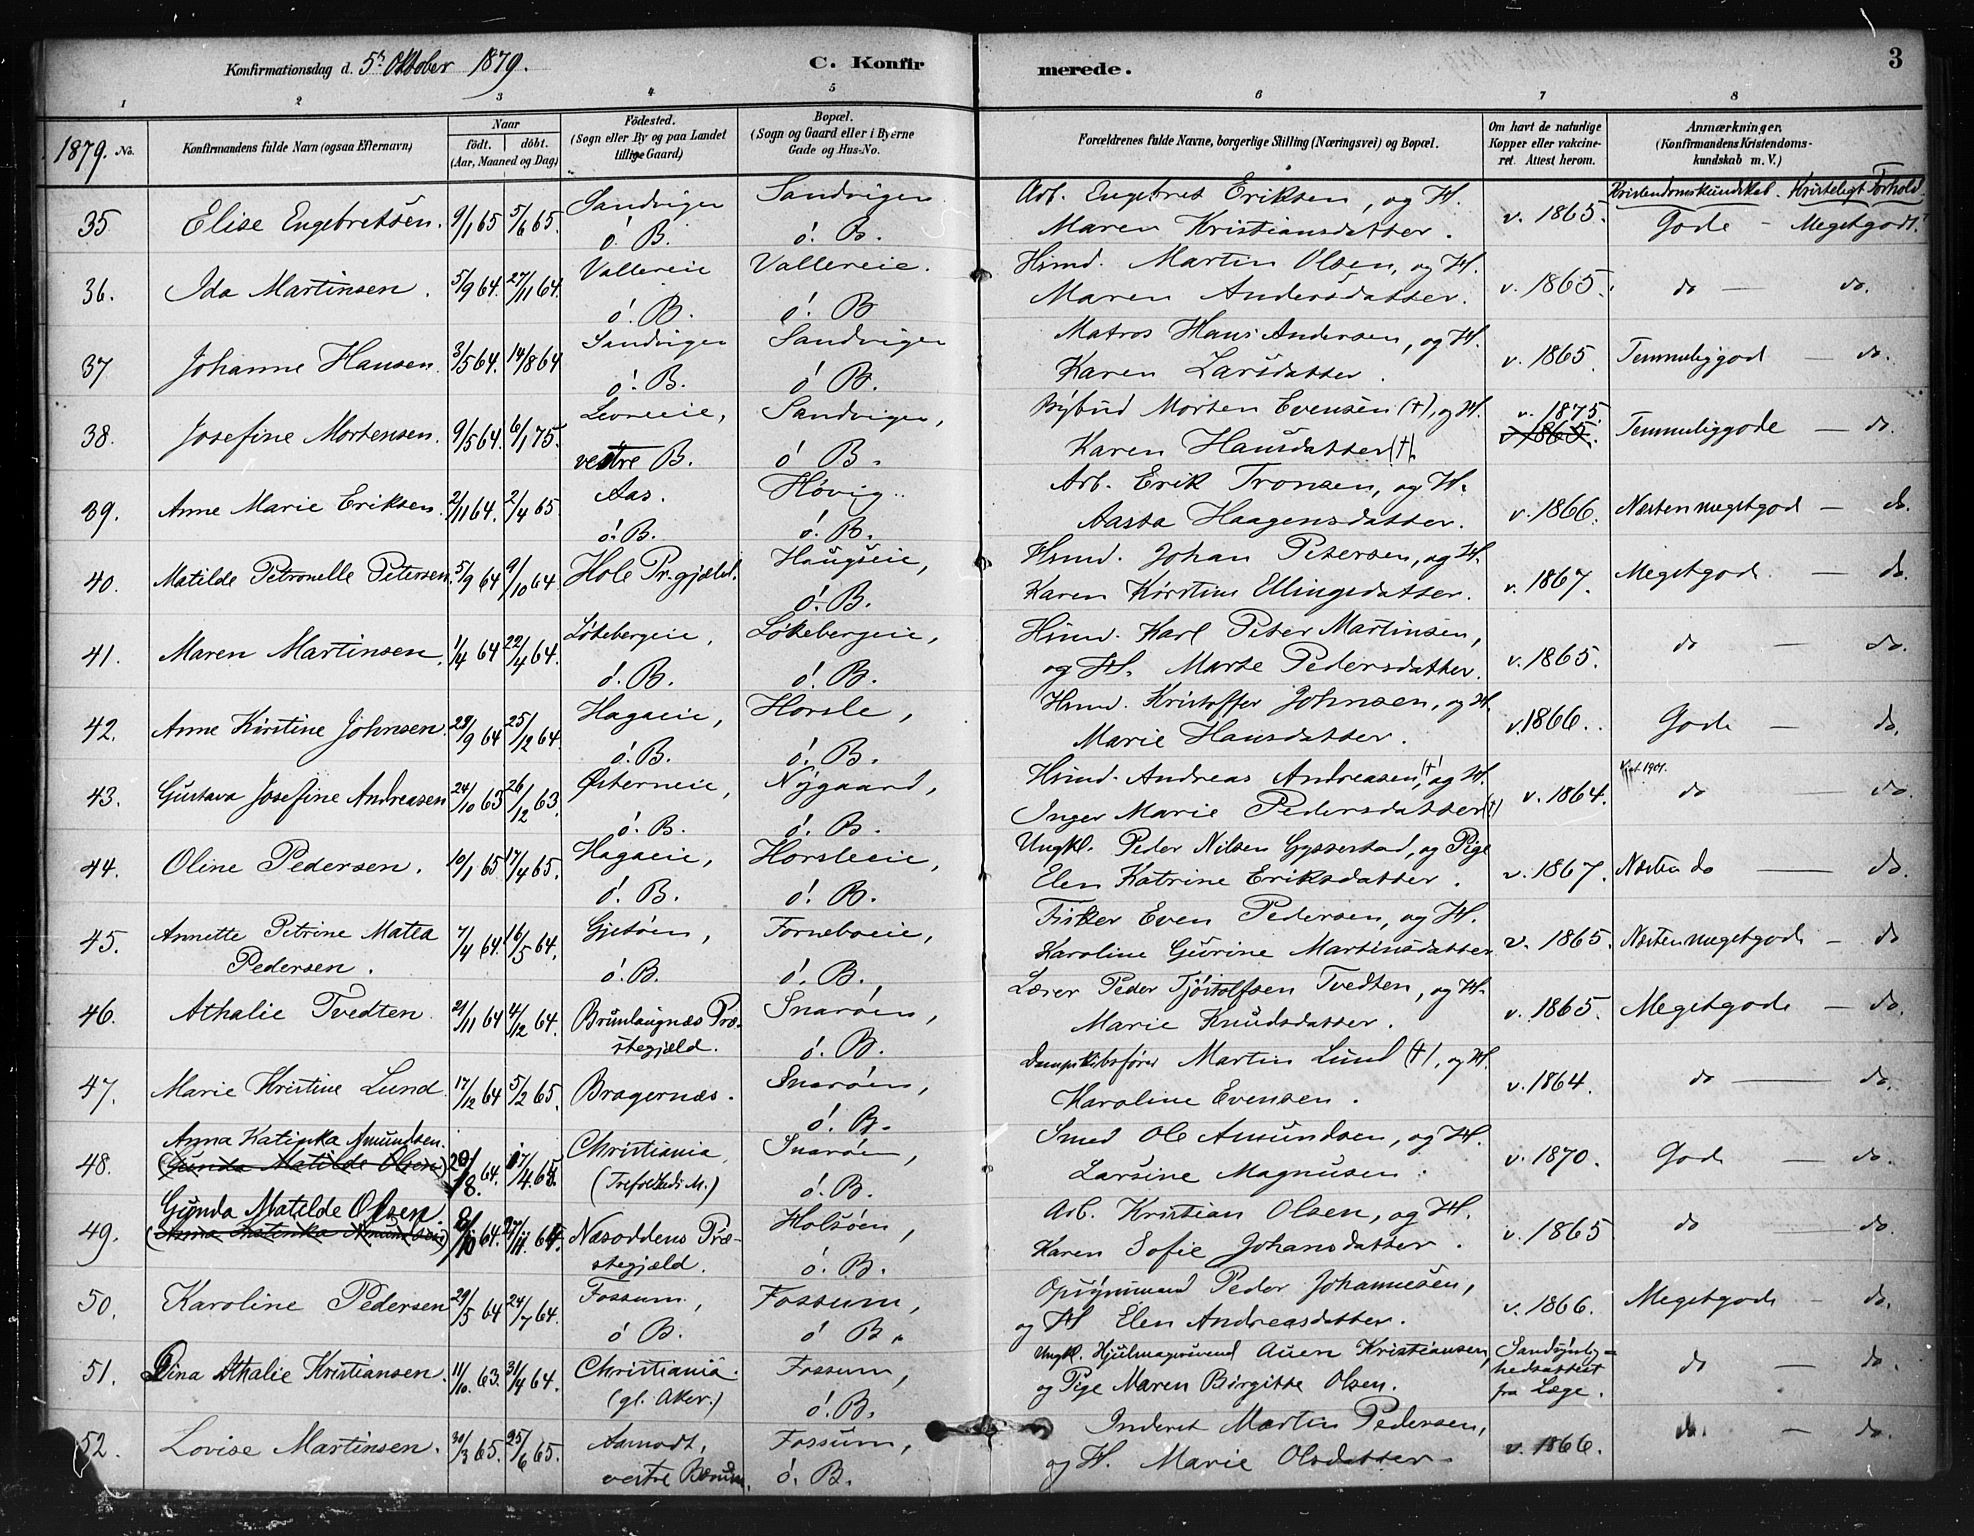 Konfirmationsdag d. 5t Oktober 1879.
C. Konfirmerede.
3
1 2 3 4 5 6 7 8
1879. No.
Konfirmandens fulde Navn (ogsaa Efternavn)
Naar
födt. döbt.
(Aar, Maaned og Dag)
Födested.
(Sogn eller By og paa Landet
tillige Gaard)
Bopæl.
(Sogn og Gaard eller i Byerne
Gade og Hus-No.
Forældrenes fulde Navne, borgerlige Stilling (Næringsvei) og Bopæl.
Om havt de naturlige
Kopper eller vakcine-
ret. Attest herom.
Anmærkninger,
(Konfirmandens Kristendoms-
kundskab m. V.)
Kristendomskundskab. Kristeligt Forhold
35 Elise Engebretsen. 9/1 65 5/6 65. Sandvigen ö. B. Sandvigen ö. B. Arb. Engebret Eriksen, og H.
Maren Kristiansdatter. v. 1865. Gode - Megetgodt.
36. Ida Martinsen. 5/9 64. 27/11 64. Vallereie ö. B. Vallereie. ö. B Hsmd. Martin Olsen, og H.
Maren Andersdatter. v. 1865. do — do.
37 Johanne Hansen. 3/5 64. 14/8 64 Sandvigen ö. B. Sandvigen ö B. Matros Hans Andersen, og H.
Karen Larsdatter. v. 1865 Temmeliggod — do.
38. Josefine Mortensen. 9/5 64. 6/1 75. Levreeie, vestre B. Sandvigen, ö B. Morten Evensen (†), og H.
Karen Hansdatter (†). v. 1875. v 1865. Temmeliggode — do.
39. Anne Marie Eriksen. 2/11 64. 2/4 65 Aas. ö. B. Høvig. ö. B. Arb. Erik Tronsen, og H.
Aasta Haagensdatter. v. 1866. Næsten megetgod — do.
40. Matilde Petronelle Petersen. 5/9 64 9/10 64. Hole Pr.gjæld. Haugseie, ö. B. Hsmd. Johan Petersen, og H.
Karen Kirstine Ellingsdatter. v. 1867. Megetgod. — do.
41. Maren Martinsen. 1/4 64 22/4 64. Løkebergeie, ö. B. Løkebergeie, ö. B. Hsmd. Karl Peter Martinsen,
og H. Marte Pedersdatter. v. 1865. do — do.
42. Anne Kirstine Johnsen. 29/9 64 25/12 64. Hagaeie, ö. B. Horsle, ö. B. Hsmd. Kristoffer Johnsen, og H.
Marie Hansdatter. v. 1866. Gode — do.
43. Gustava Josefine Andreasen 24/10 63 26/12 63. Østerneie, ö. B. Nygaard, ö. B. Hsmd. Andreas Andreasen (†), og H.
Inger Marie Pedersdatter (†) v. 1864. do — do.
44. Oline Pedersen. 10/1 65 17/4 65. Hagaeie, ö. B. Horsleeie, ö. B. Ungkl. Peder Nilsen Gysserstad, og Pige
Elen Katrine Eriksdatter. v. 1867. Næsten do — do.
45. Annette Petrine Matea
Pedersen. 7/4 64. 16/5 64. Gjetøen, ö. B. Forneboeie, ö. B. Fisker Even Pedersen, og H.
Karoline Gurine Martinsdatter v. 1865. Næsten megetgode — do
46. Athalie Tvedten. 21/11 64 4/12 64. Brunlaugnæs Præ-
stegjæld. Snarøen, ö. B. Lærer Peder Tjøstolfsen Tvedten, og H.
Marie Knudsdatter. v. 1865. Megetgode — do.
47. Marie Kristine Lund. 17/12 64 5/2 65. Bragernæs. Snarøen, ö. B. Dampskibsfører Martin Lund (†), og H.
Karoline Evensen. v. 1864. do — do.
48. Anna Katinka Amundsen.
(Gunda Matilde Olsen) 20/8 64. 17/4 65. Christiania, (Trefoldheds M.) Snarøen, ö. B. Smed Ole Amundsen, og H.
Larsine Magnusen. v. 1870. Gode — do.
49. Gunda Matilde Olsen
(Anna Katinka Amundsen) 8/10 64. 27/11 64. Næsoddens Præ-
stegjæld. Holsøen, ö. B. Arb. Kristian Olsen, og H.
Karen Sofie Johansdatter. v. 1865 do — do.
50. Karoline Pedersen 29/5 64 24/7 64. Fossum, ö B. Fossum, ö B. Opsynsmand Peder Johannesen,
og H Elen Andreasdatter. v. 1866. Megetgode — do.
51. Dina Athalie Kristiansen. 11/10 63. 31/4 64. Christiania. (gl. Aker.) Fossum, ö. B. Ungkl. Hjulmagersvend Auen Kristiansen,
og Pige Maren Birgitte Olsen. Sandsynlig-
hedsattest
fra Læge. do — do.
52. Lovise Martinsen. 30/3 65. 25/6 65. Aamodt, vestre Bærum. Fossum, ö. B. Inderst Martin Pedersen,
og H. Marie Olsdatter. v. 1866. do. — do.